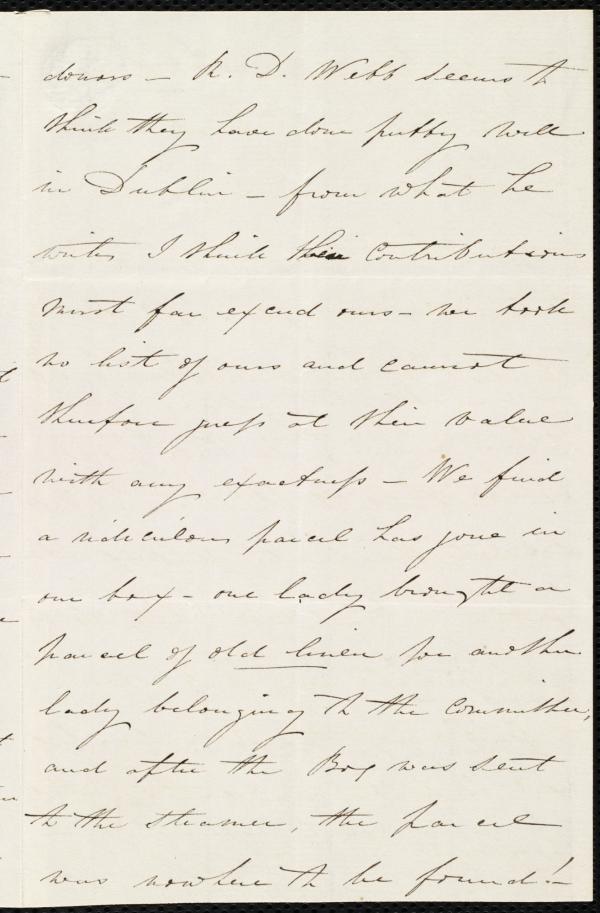 donors – R. D. Webb seems to
think they have done pretty well
in Dublin – from what he
writes I think their contributions
must far exceed ours – we took
no list of ours and cannot
therefore guess at their value
with any exactness – We find
a ridiculous parcel has gone in
our box – one lady brought a
parcel of old linen for another
lady belonging to the Committee,
and after the Box was sent
to the steamer, the parcel
was nowhere to be found! –